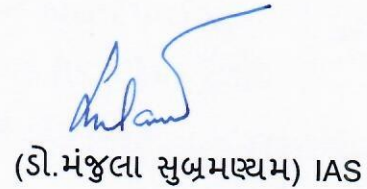 (ડો.મંજુલા સુબ્રમણ્યમ) IAS